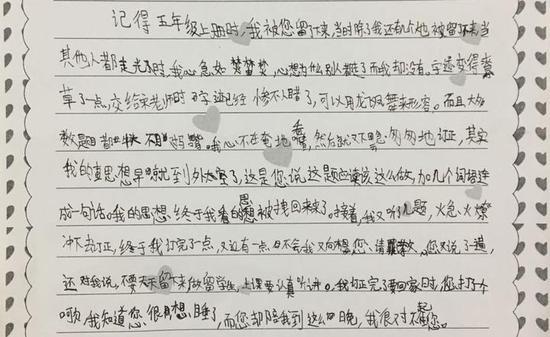 记得五年级上册时，我被您留了下来，当时除了我还有几个也被留下来，当
其他人都走光了时，我心急如焚，心想为什么别人都走了而我却没有。字迹变得潦
草了一点，交给宋老师时字迹已经惨不忍睹了，可以用龙飞凤舞来形容。而且大多
数题目都。我心不在焉地，然后就又匆匆地订正，其实
我的真思想早就到外太空了，这是您说，这题应该这么做，加几个词接连
成一句话。我的思想终于被拽回来了。接着，我又听几题，火急火燎
冲下去订正，终于我订完了一点，又还有一点日不会我又向您请教，您又说了一道，
还对我说，不要天天留下来做留学生，上课要认真听讲。我订正完了要回家时，您打了个
哈欠，我知道您很想睡了，而您却陪我到这么晚，我很对不起您。